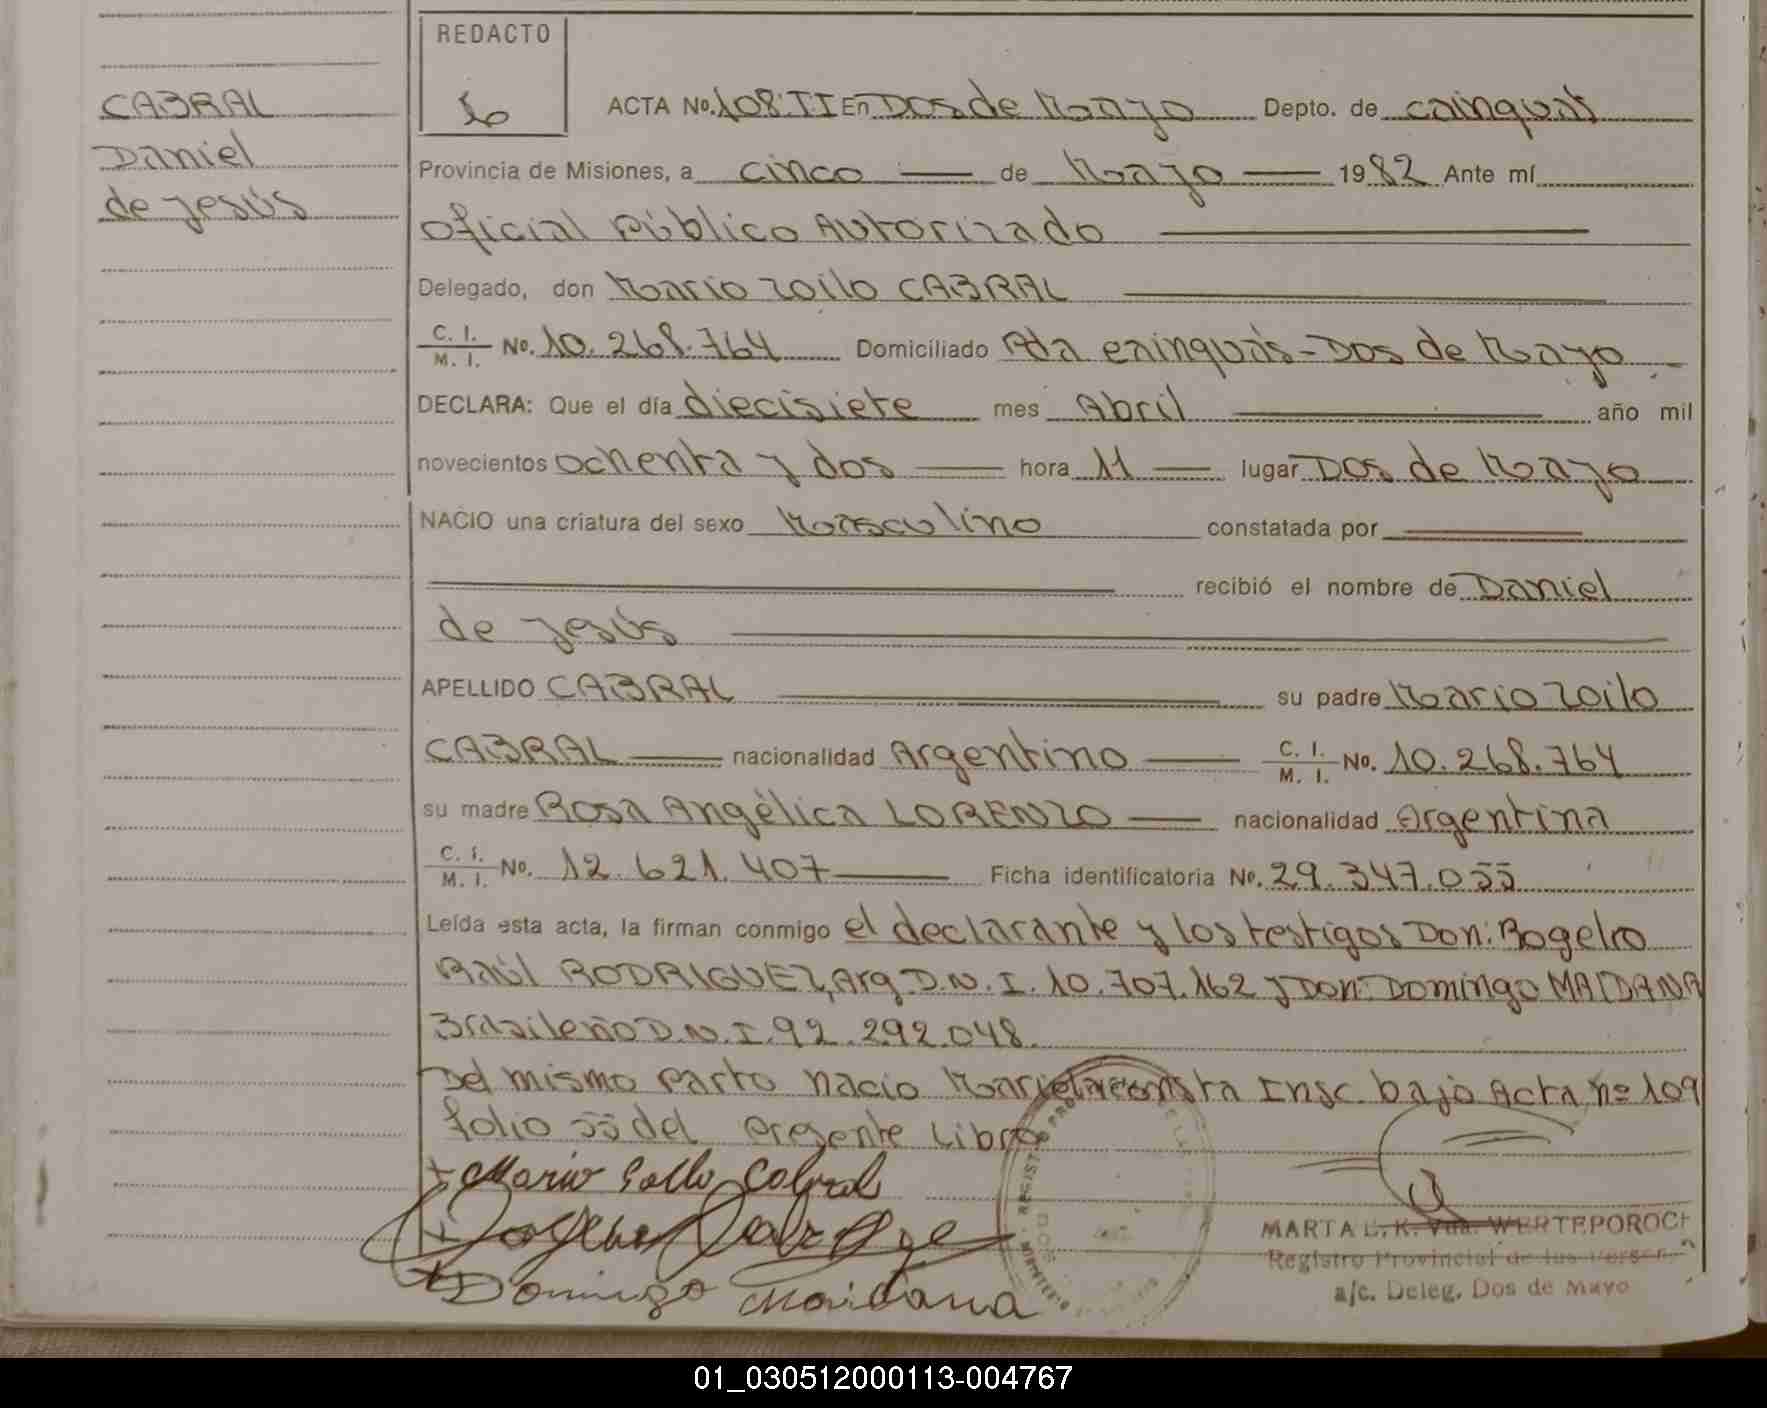 CABRAL
Daniel
de Jesús
REDACTO
ACTA No. 108 II En Dos de Mayo Depto. de Cainguás
Provincia de Misiones, a cinco de Mayo 1982 Ante mí
Oficial Público Autorizado
Delegado, don Mario Zoilo CABRAL
C. I. / M. I. No. 10.268.764 Domiciliado Pda Cainguás - Dos de Mayo
DECLARA: Que el día diecisiete mes Abril año mil
novecientos ochenta y dos hora 11 lugar Dos de Mayo
NACIO una criatura del sexo Masculino constatada por
recibió el nombre de Daniel
de Jesús
APELLIDO CABRAL su padre Mario Zoilo
CABRAL nacionalidad Argentino C. I. / M. I. No. 10.268.764
su madre Rosa Angélica LORENZO nacionalidad Argentina
C. I. / M. I. No. 12.621.407 Ficha identificatoria No. 29.347.055
Leída esta acta, la firman conmigo el declarante y los testigos Don: Rogelio
Raúl RODRIGUEZ, Arg. D.N.I. 10.707.162 y Don: Domingo MAIDANA
Brasileño D.N.I. 92.292.048.
Del mismo parto nacio Mariela consta Insc. bajo Acta nº 109
folio 55 del presente Libro
Mario Zoilo Cabral
Domingo Maidana
MARTA L. K. Vda. WERTEPOROCH
Registro Provincial de las Person
a/c. Deleg. Dos de Mayo
01_030512000113-004767